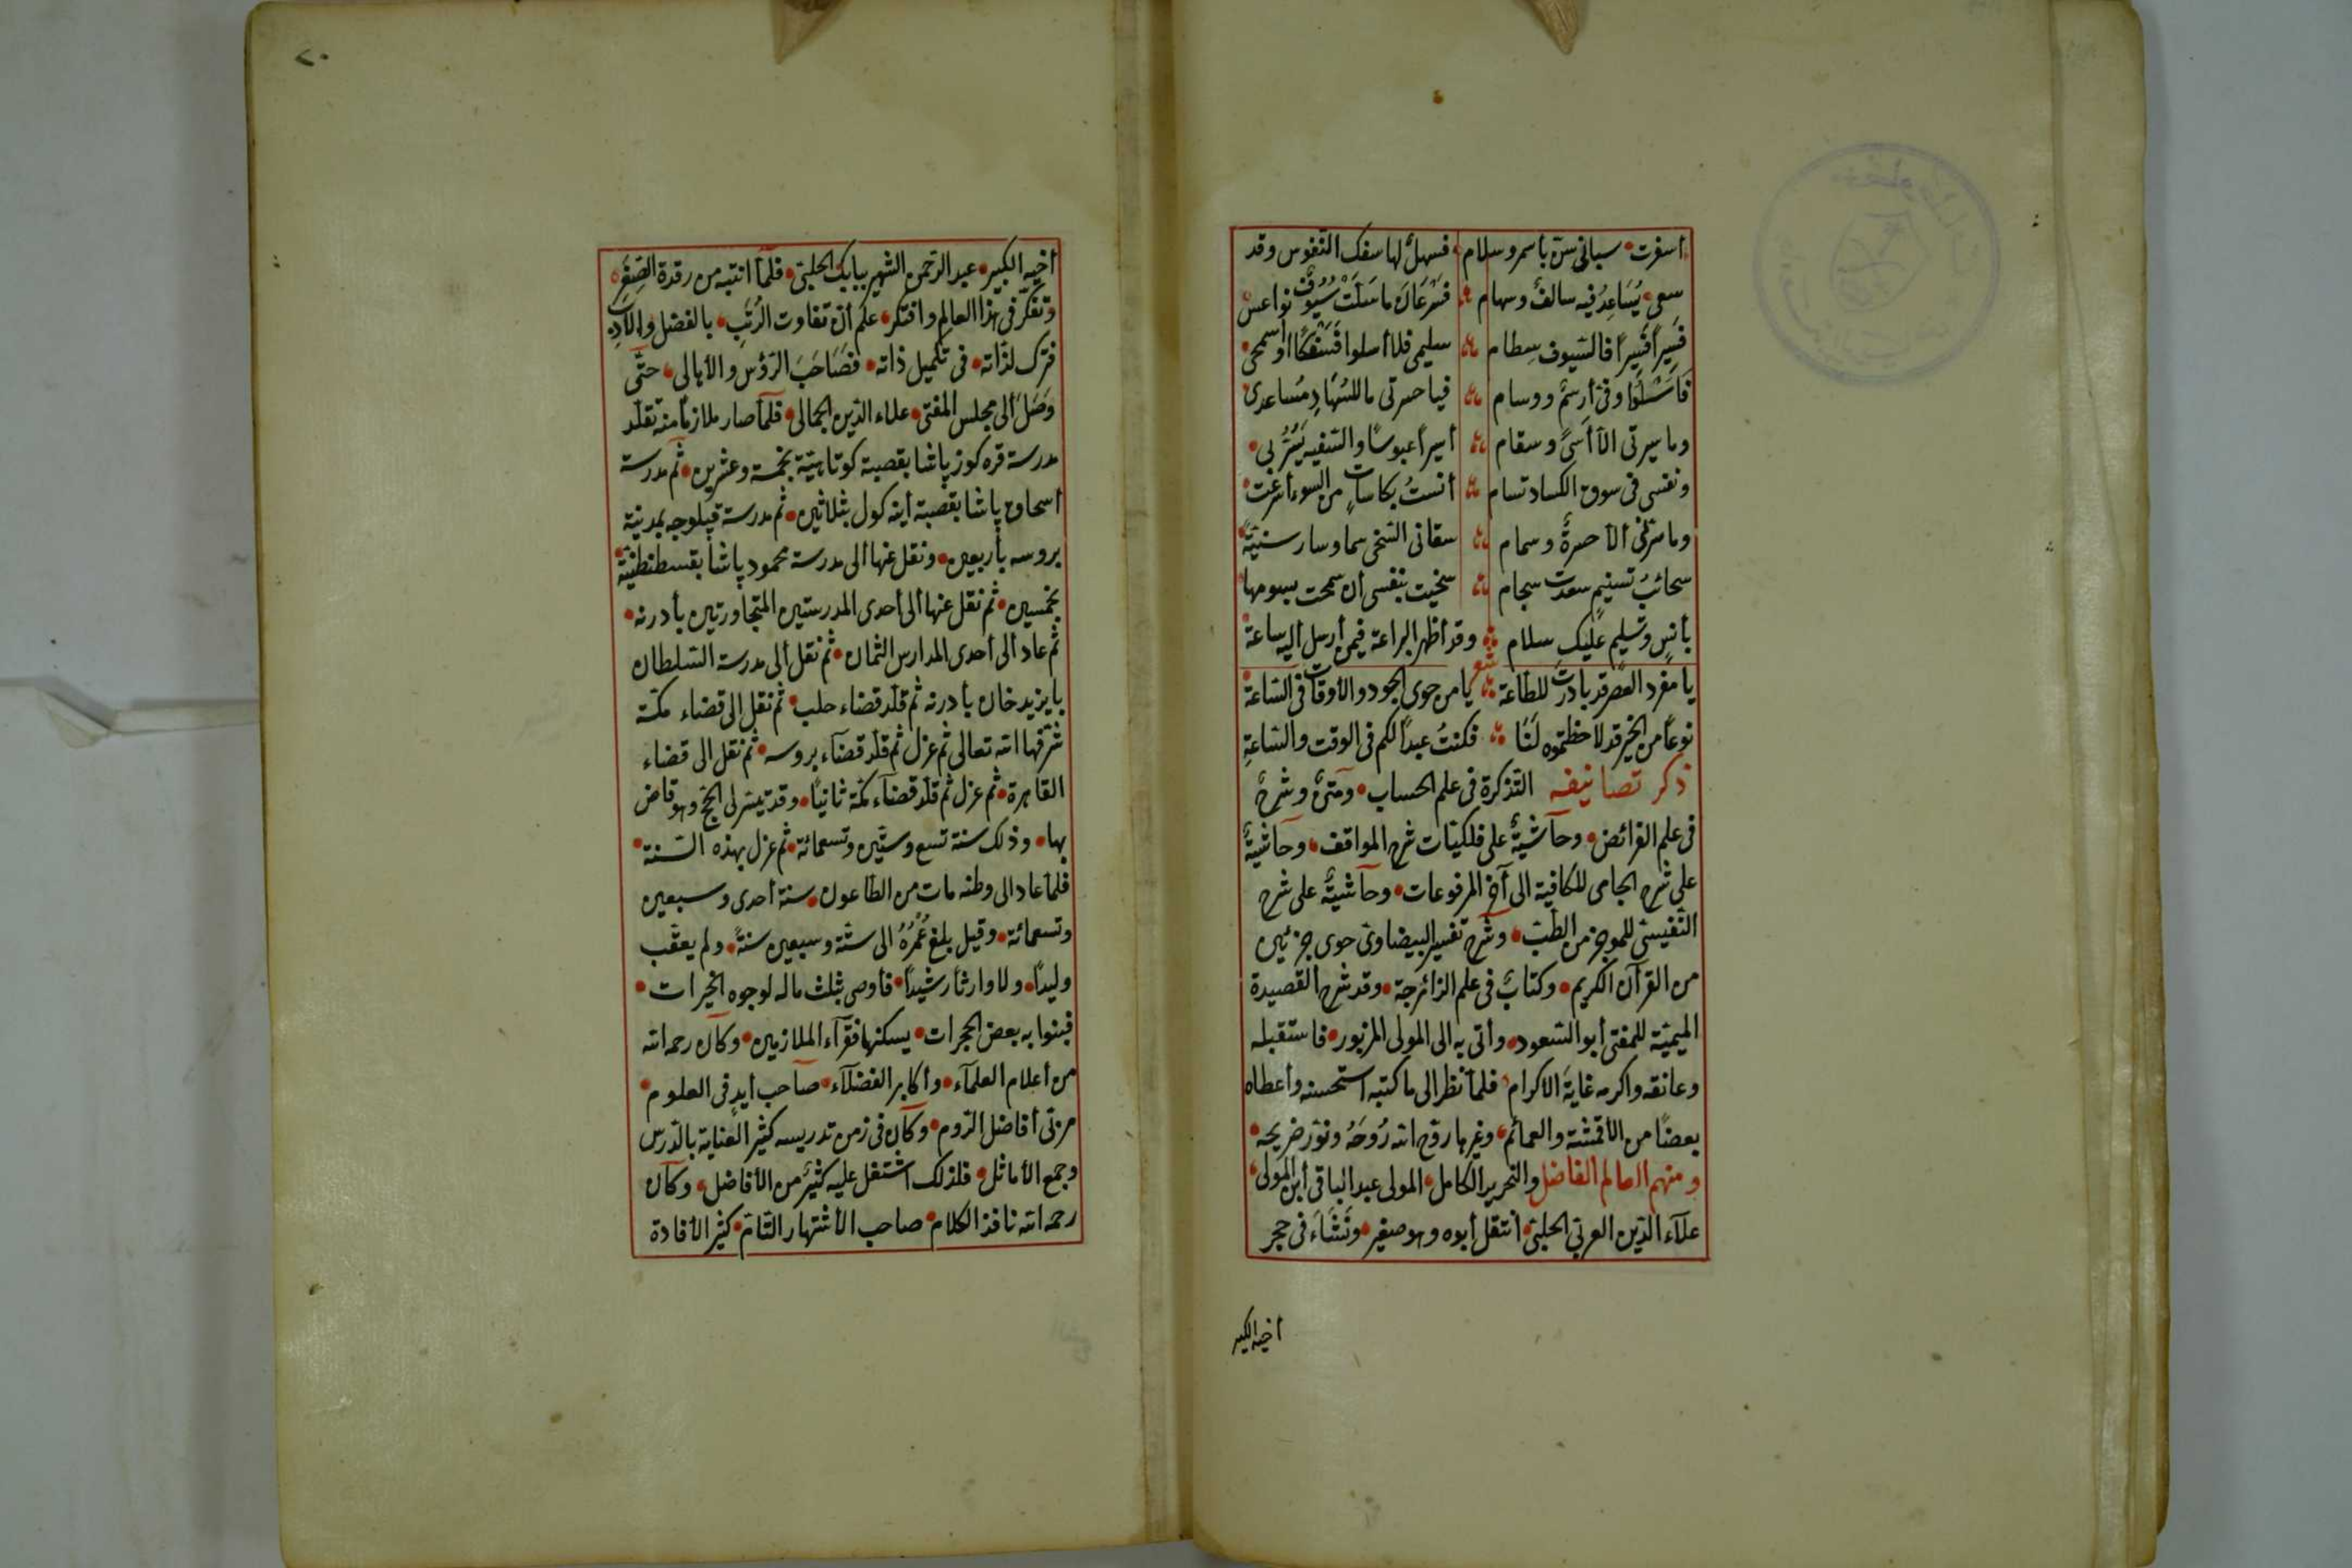 أسفرت سباني سن بأسمر وسلام فسهل لها سفك النفوس وقد
سعى يساعد فيه سالف وسهام فسرعان ما سلت سيوف نواعس
فسيرا فسيرا فالسيوف سطام سليمى فلا أسلوا فسفكا أو اسمحى
وفى أرسم ووسام فيا حسرتى ما للسهاد مساعدى
وما سيرتى الا أسى وسقام أسيرا عبوسا والسفيه يسر بى
ونفسى فى سوق الكساد تسام أنست بكاسات من السوء أترعت
وما سرنى الا حسرة وسمام سقانى السخى سما وسار سنية
سحائب تسنيم سعدت سجام سخيت بنفسى ان سمحت بسومها
بأنس وتسليم عليك سلام وقد أظهر البراعة فيمن أرسل اليه ساعة
شعر
يا مفرد العصر قد بادرت للطاعة يا من حوى الجود والأوقات فى الساعة
نوعا من الخير قد لاحظتموه لنا فكنت عبدا لكم فى الوقت والساعة
ذكر تصانيفه التذكرة فى علم الحساب ومتن وشرح
فى علم الفرائض وحاشية على فلكيات شرح المواقف وحاشية
على شرح الجامى للكافية الى آخر المرفوعات وحاشية على شرح
النفيسى للموجز من الطب وشرح تفسير البيضاوى حوى جزئين
من القرآن الكريم وكتاب فى علم الزائرجة وقد شرح القصيدة
الميمية للمفتى أبو السعود وأتى به الى المولى المزبور فاستقبله
وعانقه واكرمه غاية الاكرام فلما نظر الى ما كتبه استحسنه وأعطاه
بعضا من الأقمشة والعمائم وغيرها روح الله روحه ونور ضريحه
ومنهم العالم الفاضل والنحرير الكامل المولى عبد الباقى أبن المولى
علآء الدين العربى الحلبى أنتقل أبوه وهو صغير ونشاء فى حجر
أخيه الكبير
٢٠
أخيه الكبير عبد الرحمن الشهير ببابك الحلبى فلما انتبه من رقدة الصغر
وتفكر فى هذا العالم وافتكر علم أن تفاوت الرتب بالفضل والأدب
فترك لذاته فى تكميل ذاته فصاحب الرؤس والأهالى حتى
وصل ألى مجلس المفتى علاء الدين الجمالى فلما صار ملازما منه تقلد
مدرسة قره كوز پاشا بقصبة كوتاهية بخمسة وعشرين ثم مدرسة
أسحاق پاشا بقصبة أينه كول بثلاثين ثم مدرسة قپلوجه بمدينة
بروسه بأربعين ونقل عنها ألى مدرسة محمود پاشا بقسطنطنية
بخمسين ثم نقل عنها ألى أحدى المدرستين المتجاورتين بأدرنه
ثم عاد ألى أحدى المدارس الثمان ثم نقل ألى مدرسة السلطان
بايزيد خان بأدرنه ثم قلد قضاء حلب ثم نقل الى قضاء مكة
شرفها الله تعالى ثم عزل ثم قلد قضآء بروسه ثم نقل الى قضاء
القاهرة ثم عزل ثم قلد قضآء مكة ثانيا وقد تيسر لى الحج وهو قاض
بها وذلك سنة تسع وستين وتسعمائة ثم عزل بهذه السنة
فلما عاد الى وطنه مات من الطاعون سنة أحدى وسبعين
وتسعمائة وقيل بلغ عمره الى ستة وسبعين سنة ولم يعقب
وليدا ولا وارثا رشيدا فأوصى بثلث ماله لوجوه الخيرات
فبنوا به بعض الحجرات يسكنها فقرآء الملازمين وكان رحمه الله
من أعلام العلمآء وأكابر الفضلآء صاحب أيد فى العلوم
مربى أفاضل الروم وكان فى زمن تدريسه كثير العناية بالدرس
وجمع الأماثل فلذلك اشتغل عليه كثير من الأفاضل وكان
رحمه الله نافذ الكلام صاحب الأشتهار التام كثير الأفادة